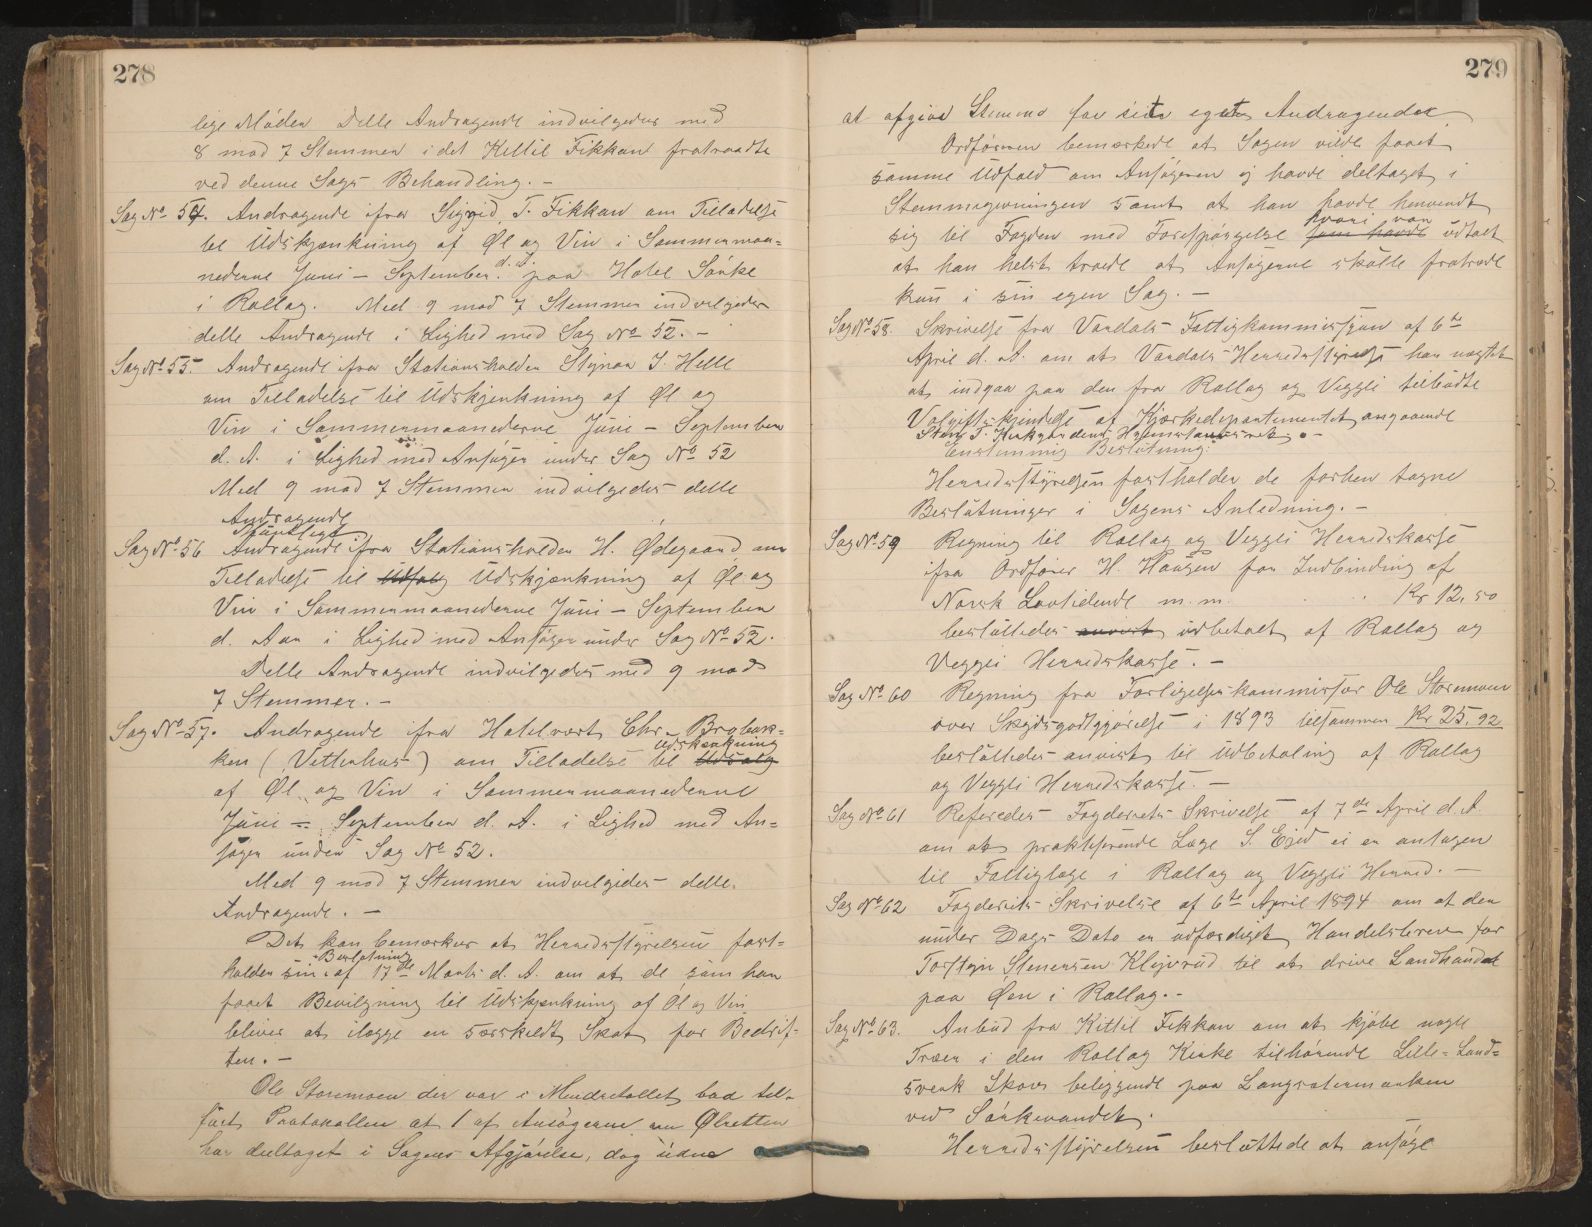 278
lige Møder Dette Andragende indvilgedes med
8 mod 7 Stemmer i det Kittil Fikkan fratraadte
ved denne Sags Behandling. -
Sag No 54. Andragende ifra Sigrid T. Fikkan om Tilladelse
til Udskjænkning af Øl og Vin i Sommermaa=
nederne Juni - September d. A. paa Hotel Sørke
i Rollag. Med 9 mod 7 Stemmer indvilgedes
dette Andragende i Lighed med Sag No 52. -
Sag No 55 Andragende ifra Stationsholder Steinar J. Helle
om Tilladelse til Udskjenkning af Øl og
Vin i Sommermaanederne Juni - September
d. A. i Lighed med Ansøger under Sag No 52
Med 9 mod 7 Stemmer indvilgedes dette
Andragende
Skriftligt
Sag No 56 Andragende ifra Stationsholder H. Ødegaard om
Tilladelse til Udsalg Udskjænkning af Øl og
Vin i Sommermaanederne Juni - September
d. Aar i Lighed med Ansøger under Sag No 52.
Dette Andragende indvilgedes med 9 mod
7 Stemmer. -
Sag No 57. Andragende ifra Hotelvært Chr. Brobak=
Udskænkning
ken (Vettenhus) om Tilladelse til Udsalg
af Øl og Vin i Sommermaanederne
Juni - September d. A. i Lighed med An=
søger under Sag No 52.
Med 9 mod 7 Stemmer indvilgedes dette
Andragende. -
Det kan bemærkes at Herredsstyrelsen fast=
Beslutning
holder sin af 17de Marts d. A. om at de som har
faaet Bevilgning til Udskjænkning af Øl og Vin
bliver at ilægge en særskildt Skat for Bedrif=
ten. -
Ole Storemoen der var i Mindretallet bad til=
ført Protokollen at 1 af Ansøgerne om Ølretten
har deeltaget i Sagens Afgjørelse, dog uden
279
at afgive Stemme for sit eget Andragende
Ordføreren bemærkede at Sagen vilde faaet
samme Udfald om Ansøgeren ej havde deltaget i
Stemmegivningen samt at han havde henvendt
hvori var
sig til Fogden med Forespørgelse som havde udtalt
at han helst troede at Ansøgerne skulle fratræde
kun i sin egen Sag. -
Sag No 58. Skrivelse fra Vardals Fattigkommission af 6te
April d. A. om at Vardals Herredsstyrelse har nægtet
at indgaa paa den fra Rollag og Veggli tilbudte
Vedgiftskjendelse af Kjærkedepartementet angaaende
Enstemmig Beslutning:
Herredsstyrelsen fastholder de forhen tagne
Beslutninger i Sagens Anledning. -
Sag No 59 Regning til Rollag og Veggli Herredskasse
ifra Ordfører H. Haugen for Indbinding af
Norsk Lovtidende m. m. Kr 12,50
besluttedes anvist udbetalt af Rollag og
Veggli Herredskasse. -
Sag No 60 Regning fra Forligelseskommissær Ole Storemoen
over Skydsgodtgjørelse i 1893 tilsammen Kr 25,92
besluttedes anvist til Udbetaling af Rollag
og Veggli Herredskasse. -
Sag No 61 Referedes Fogderiets Skrivelse af 7de April d. A.
om at praktiserende Læge S. Ejed ei er antagen
til Fattiglæge i Rollag og Veggli Herred. -
Sag No 62 Fogderiets Skrivelse af 6te April 1894 om at der
under Dags Dato er udfærdiget Handelsbrev for
Torstein Stenersen Klejvrud til at drive Landhandel
paa Øen i Rollag. -
Sag No 63. Anbud fra Kittil Fikkan om at kjøbe nogle
Træer i den Rollag Kirke tilhørende Lille=Land=
sverk Skov beliggende paa Langsætermarken
ved Sørkevandet.
Herredsstyrelsen besluttede at ansøge